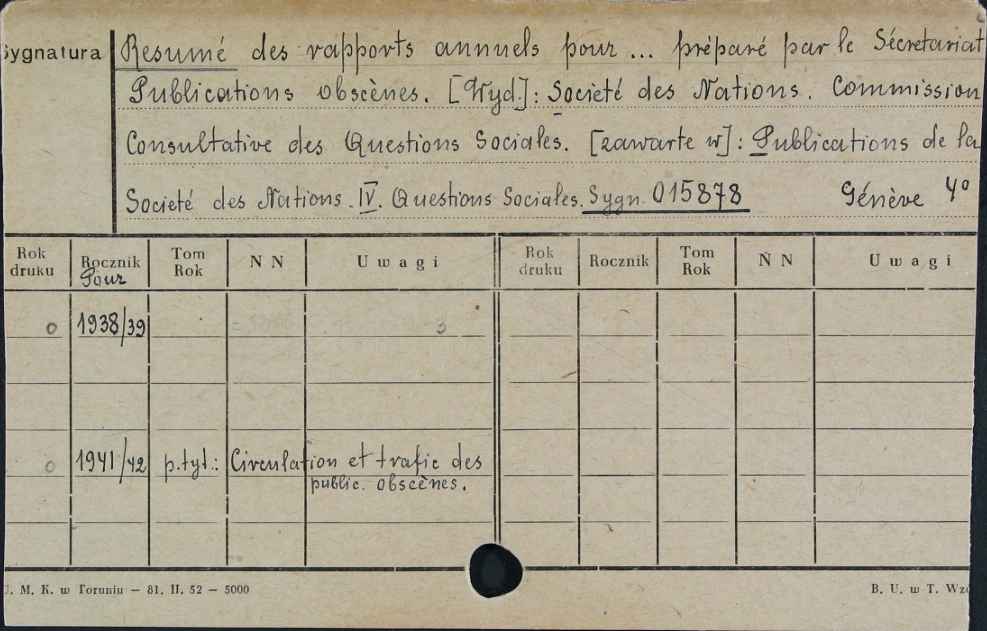 Sygnatura
Resumé des rapports annuels pour ... préparé par le Sécretariat
Publications obscènes. [Wyd.]: Societé des Nations. Commission
Consultative des Questions Sociales. [zawarte w]: Publications de la
Societé des Nations. IV. Questions Sociales. Sygn. 015878 Génève 4º
Rok druku Rocznik Tom Rok N N Uwagi Rok druku Rocznik Tom Rok N N Uwagi
Pour
0 1938/39 3
0 1941/42 p.tyt.: Circulation et trafic des
public. obscènes.
U. M. K. w Toruniu — 81. II. 52 — 5000 B. U. w T.